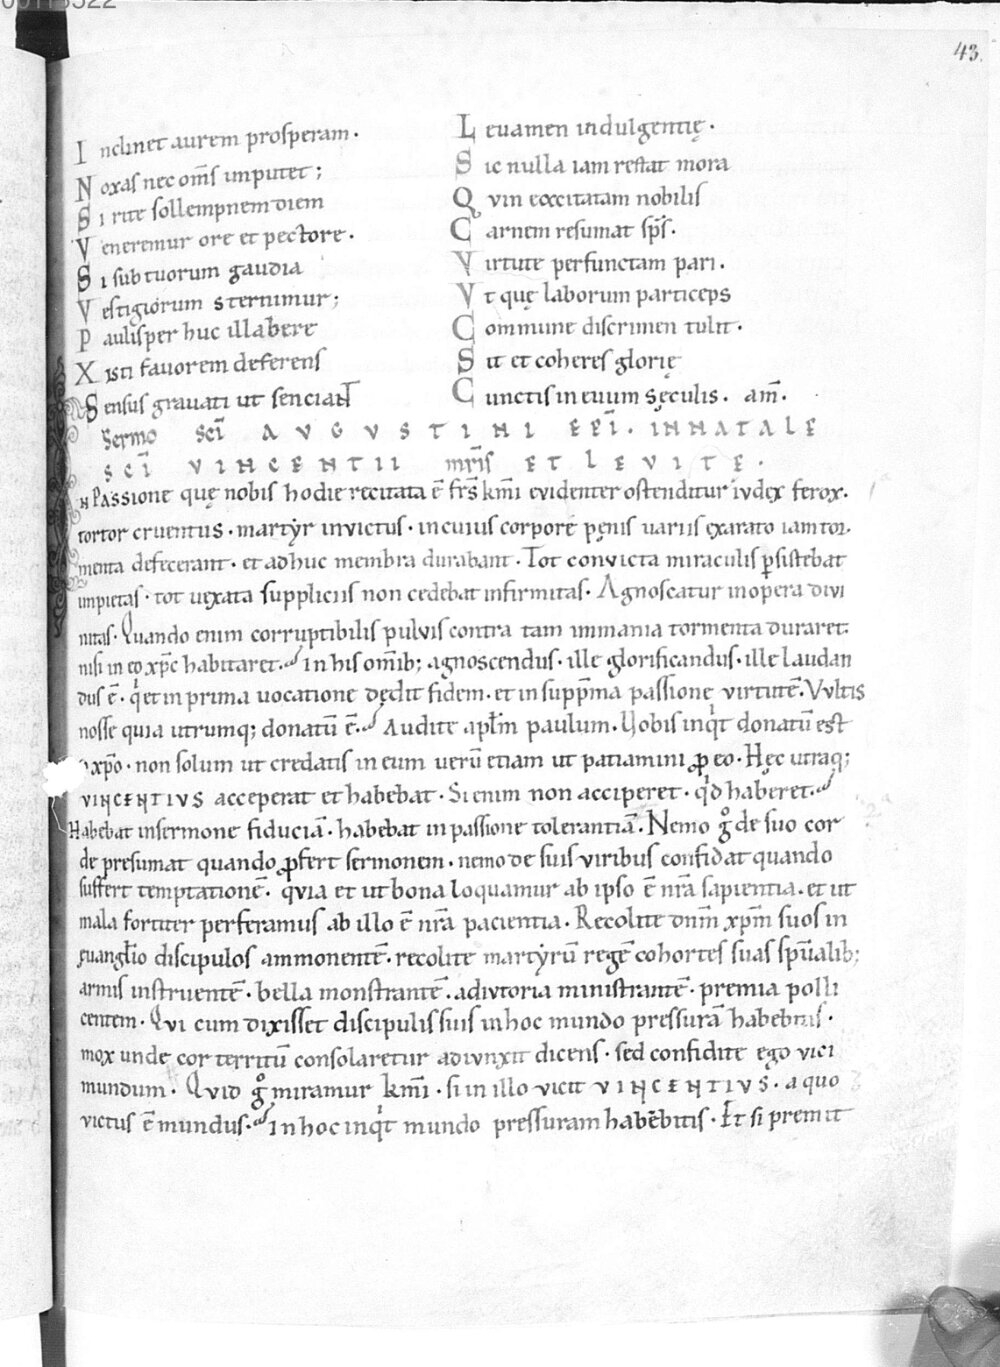 00113322
43.
Inclinet aurem prosperam.
Noxas nec om̅s imputet;
Si rite sollempnem diem
Veneremur ore et pectore.
Si sub tuorum gaudia
Vestigiorum sternimur;
Paulisper huc illabere
Xisti fauorem deferens
Sensus grauati ut senciant
Leuamen indulgentię.
Sic nulla iam restat mora
Qvin excitatam nobilis
Carnem resumat sp̅s.
Virtute perfunctam pari.
Vt quę laborum particeps
Commune discrimen tulit.
Sit et coheres glorię
Cunctis in euum sęculis. am̅.
Sermo sc̅i AVGVSTINI EP̅I. IN NATALE
sc̅i VINCENTII mr̅is ET LEVITE.
IN Passione quę nobis hodie recitata e̅ fr̅s km̅i euidenter ostenditur iudex ferox.
tortor cruentus. martyr inuictus. in cuius corpore pęnis uariis exarato iam tor
menta defecerant. et adhuc membra durabant. Tot conuicta miraculis ꝑsistebat
impietas. tot uexata suppliciis non cedebat infirmitas. Agnoscatur in opera diui
nitas. Quando enim corruptibilis puluis contra tam immania tormenta duraret.
nisi in eo xp̅c habitaret. In his om̅ib; agnoscendus. ille glorificandus. ille laudan
dus e̅. q̍ et in prima uocatione dędit fidem. et in supp̅ma passione uirtute̅. Vultis
nosse quia utrumq; donatu̅ e̅. Audite apl̅m paulum. Uobis inq̍t donatu̅ est
xp̅o. non solum ut credatis in eum ueru̅ etiam ut patiamini ꝓ eo. Hęc utraq;
VINCENTIVS acceperat et habebat. Si enim non acciperet. q̍d haberet.
Habebat in sermone fiducia̅. habebat in passione tolerantia̅. Nemo g̊ de suo cor
de presumat quando ꝓfert sermonem. nemo de suis uiribus confidat quando
suffert temptatione̅. qvia et ut bona loquamur ab ipso e̅ nr̅a sapientia. et ut
mala fortiter perferamus ab illo e̅ nr̅a pacientia. Recolite dn̅m xp̅m suos in
euangl̅io discipulos ammonente̅. recolite martyru̅ rege̅ cohortes suas sp̅ualib;
armis instruente̅. bella monstrante̅. adiutoria ministrante̅. premia polli
centem. Qui cum dixisset discipulis suis in hoc mundo pressura̅ habebitis.
mox unde cor territu̅ consolaretur adiunxit dicens. sed confidite ego uici
mundum. Quid g̊ miramur km̅i. si in illo uicit VINCENTIVS. a quo
uictus e̅ mundus. In hoc inq̍t mundo pressuram habebitis. Et si premit